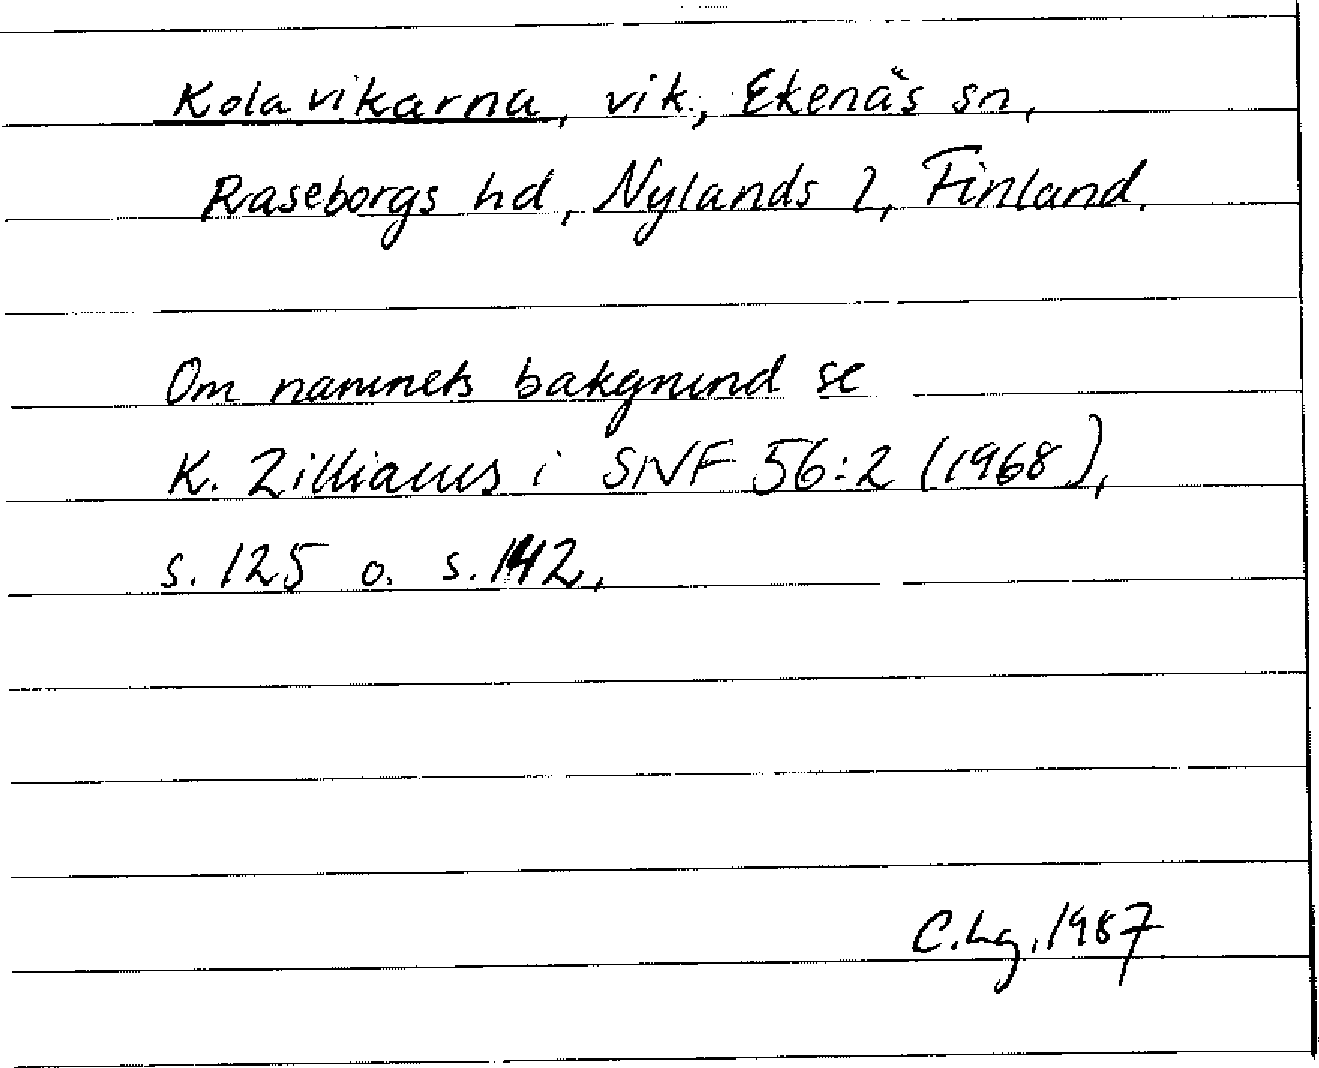 Kolavikarna, vik, Ekenäs sn,
Raseborgs hd, Nylands l, Finland.
Om namnets bakgrund se
K. Zilliacus i SNF 56:2 (1968),
s. 125 o. s. 142.
C.Lg. 1987